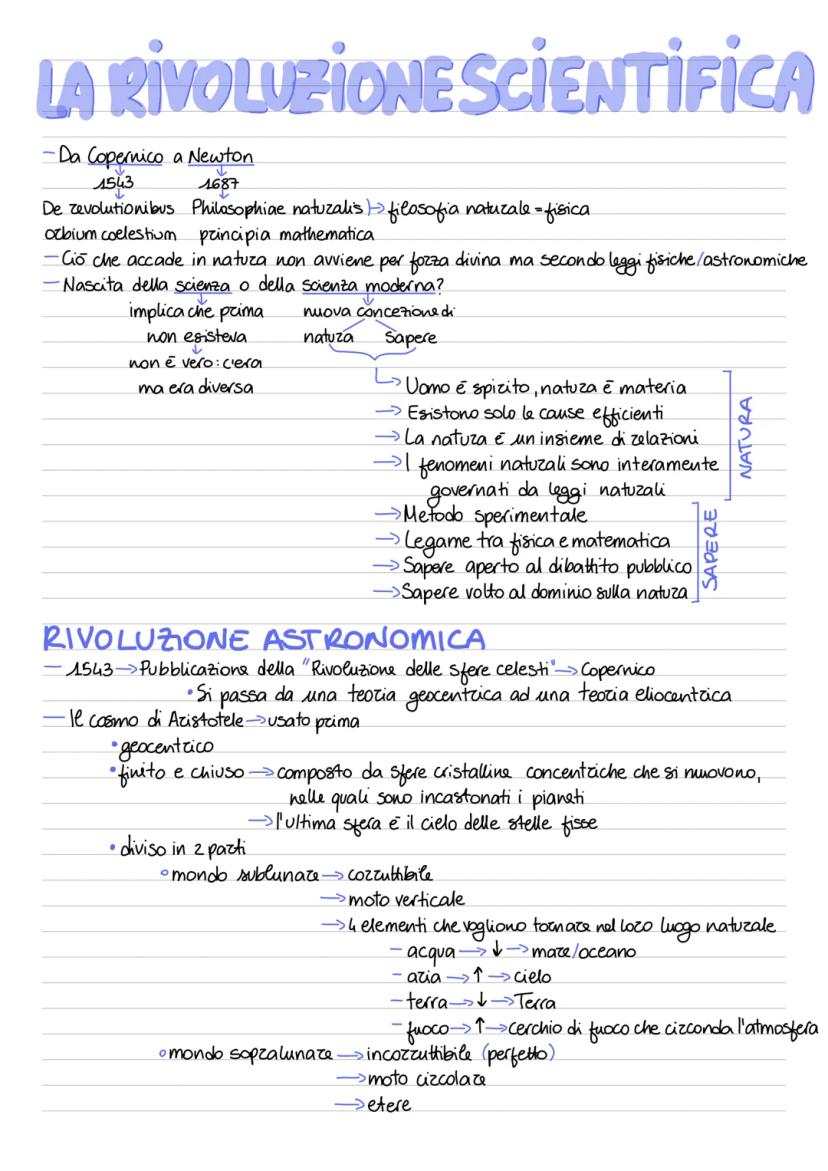 LA RIVOLUZIONE SCIENTIFICA
- Da Copernico a Newton
1543 1687
De revolutionibus Philosophiae naturalis → filosofia naturale = fisica
orbium coelestium principia mathematica
- Ciò che accade in natura non avviene per forza divina ma secondo leggi fisiche/astronomiche
- Nascita della scienza o della scienza moderna?
implica che prima nuova concezione di
non esisteva natura sapere
non è vero: c'era
ma era diversa
→ Uomo è spirito, natura è materia
→ Esistono solo le cause efficienti
→ La natura è un insieme di relazioni
→ I fenomeni naturali sono interamente
governati da leggi naturali
NATURA
→ Metodo sperimentale
→ Legame tra fisica e matematica
→ Sapere aperto al dibattito pubblico
→ Sapere volto al dominio sulla natura
SAPERE
RIVOLUZIONE ASTRONOMICA
- 1543 → Pubblicazione della "Rivoluzione delle sfere celesti" → Copernico
• Si passa da una teoria geocentrica ad una teoria eliocentrica
- Il cosmo di Aristotele → usato prima
• geocentrico
• finito e chiuso → composto da sfere cristalline concentriche che si muovono,
nelle quali sono incastonati i pianeti
→ l'ultima sfera è il cielo delle stelle fisse
• diviso in 2 parti
◦ mondo sublunare → corruttibile
→ moto verticale
→ 4 elementi che vogliono tornare nel loro luogo naturale
- acqua → ↓ → mare/oceano
- aria → ↑ → cielo
- terra → ↓ → Terra
- fuoco → ↑ → cerchio di fuoco che circonda l'atmosfera
◦ mondo sopralunare → incorruttibile (perfetto)
→ moto circolare
→ etere